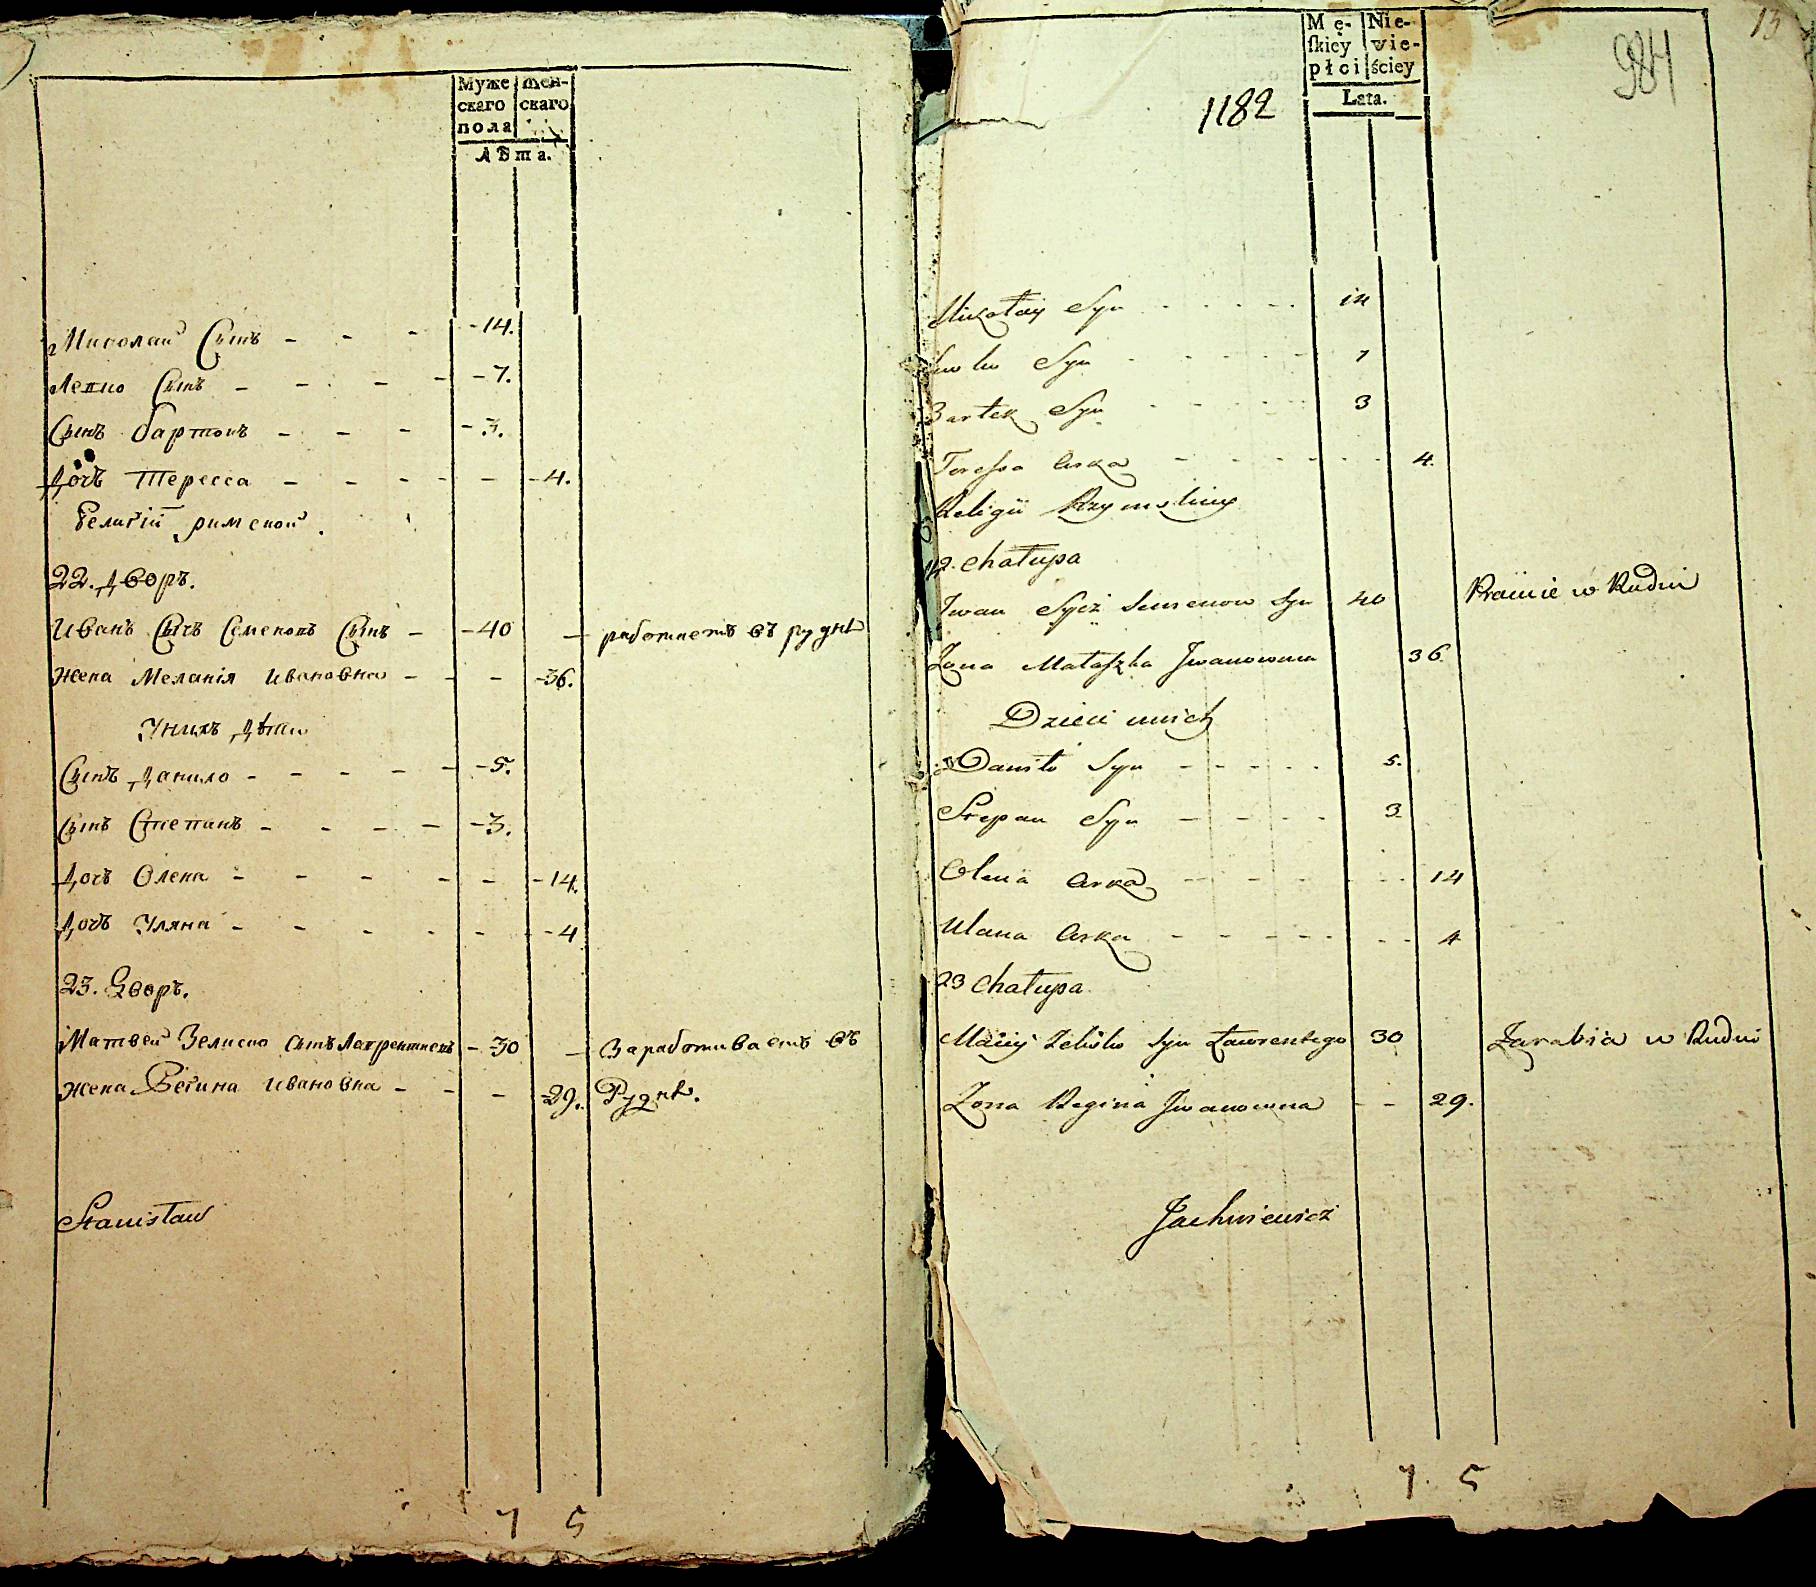 Муже скаго пола
жен- скаго
Лѣта.
Миколай Сынъ - - - -14.
Левко Сынъ - - - - -7.
Сынъ Бартонъ - - - -3.
Дочъ Тересса - - - - - -4.
Религіи римской.
22. Дворъ.
Иванъ Сычъ Семеновъ Сынъ - -40 - работаетъ въ руднѣ
Жена Меланія Ивановна - - - -36.
Унихъ Дѣти
Сынъ Данило - - - - - -5.
Сынъ Степанъ - - - - -3.
Дочъ Олена - - - - - -14.
Дочъ Уляна - - - - - -4
23. Дворъ.
Матвей Зелиско сынъ Лаврентиевъ - 30 - Заработиваетъ въ
Жена Регина Ивановна - - - -29. Руднѣ.
Stanisław
7 5
Mę- skiey płci
Nie- wie- ściey
Lata.
1182
984
13
Mikołay Syn - - - - - 14
Lewko Syn - - - - - 7
Bartek Syn - - - - - 3
Teressa Curka - - - - - - 4.
Religii Rzymskiey
22. Chałupa
Jwan Sycz Semenow Syn 40 Pracuie w Rudni
Zona Małaszka Jwanowna 36
Dzieci unich
Daniło Syn - - - - - 5.
Stepan Syn - - - - 3
Olena Curka - - - - - - 14
Ulana Curka - - - - - - - 4
23 Chałupa
Maciey Zelisko Syn Ławrentego 30 Zarabia w Rudni
Zona Regina Jwanowna - - 29.
Jachniewicz
7 5